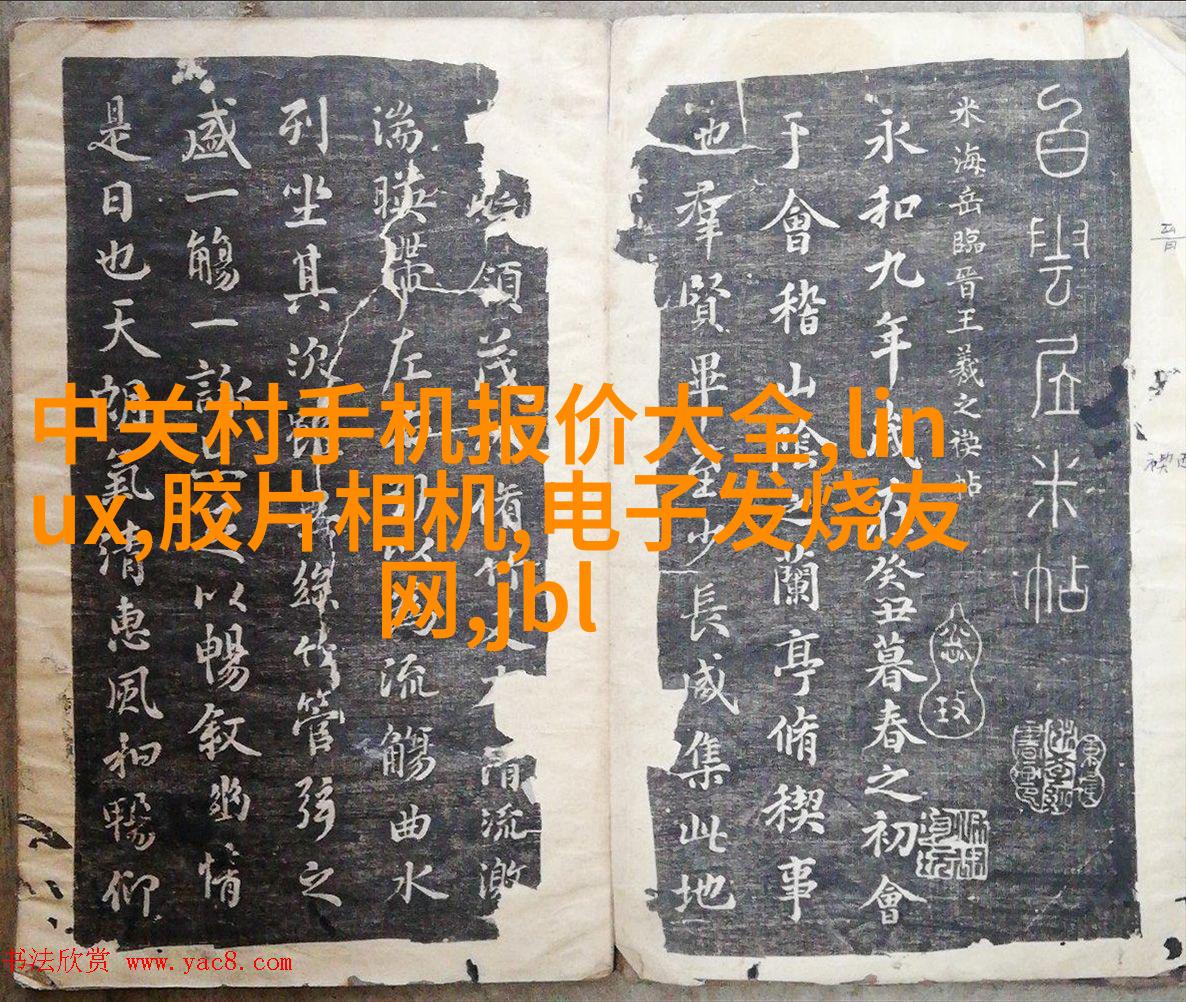 白雲居米帖
米海岳臨晉王羲之禊帖
永和九年歲在癸丑暮春之初會
于會稽山陰之蘭亭脩稧事
也羣賢畢至少長咸集此地
領茂林脩竹又有清流激
湍暎帶左右引以爲流觴曲水
列坐其次雖無絲竹管弦之
盛一觴一詠亦足以暢敘幽情
是日也天朗氣清惠風和暢仰
中关村手机报价大全,lin
ux,胶片相机,电子发烧友
网,jbl
书法欣赏 www.yac8.com